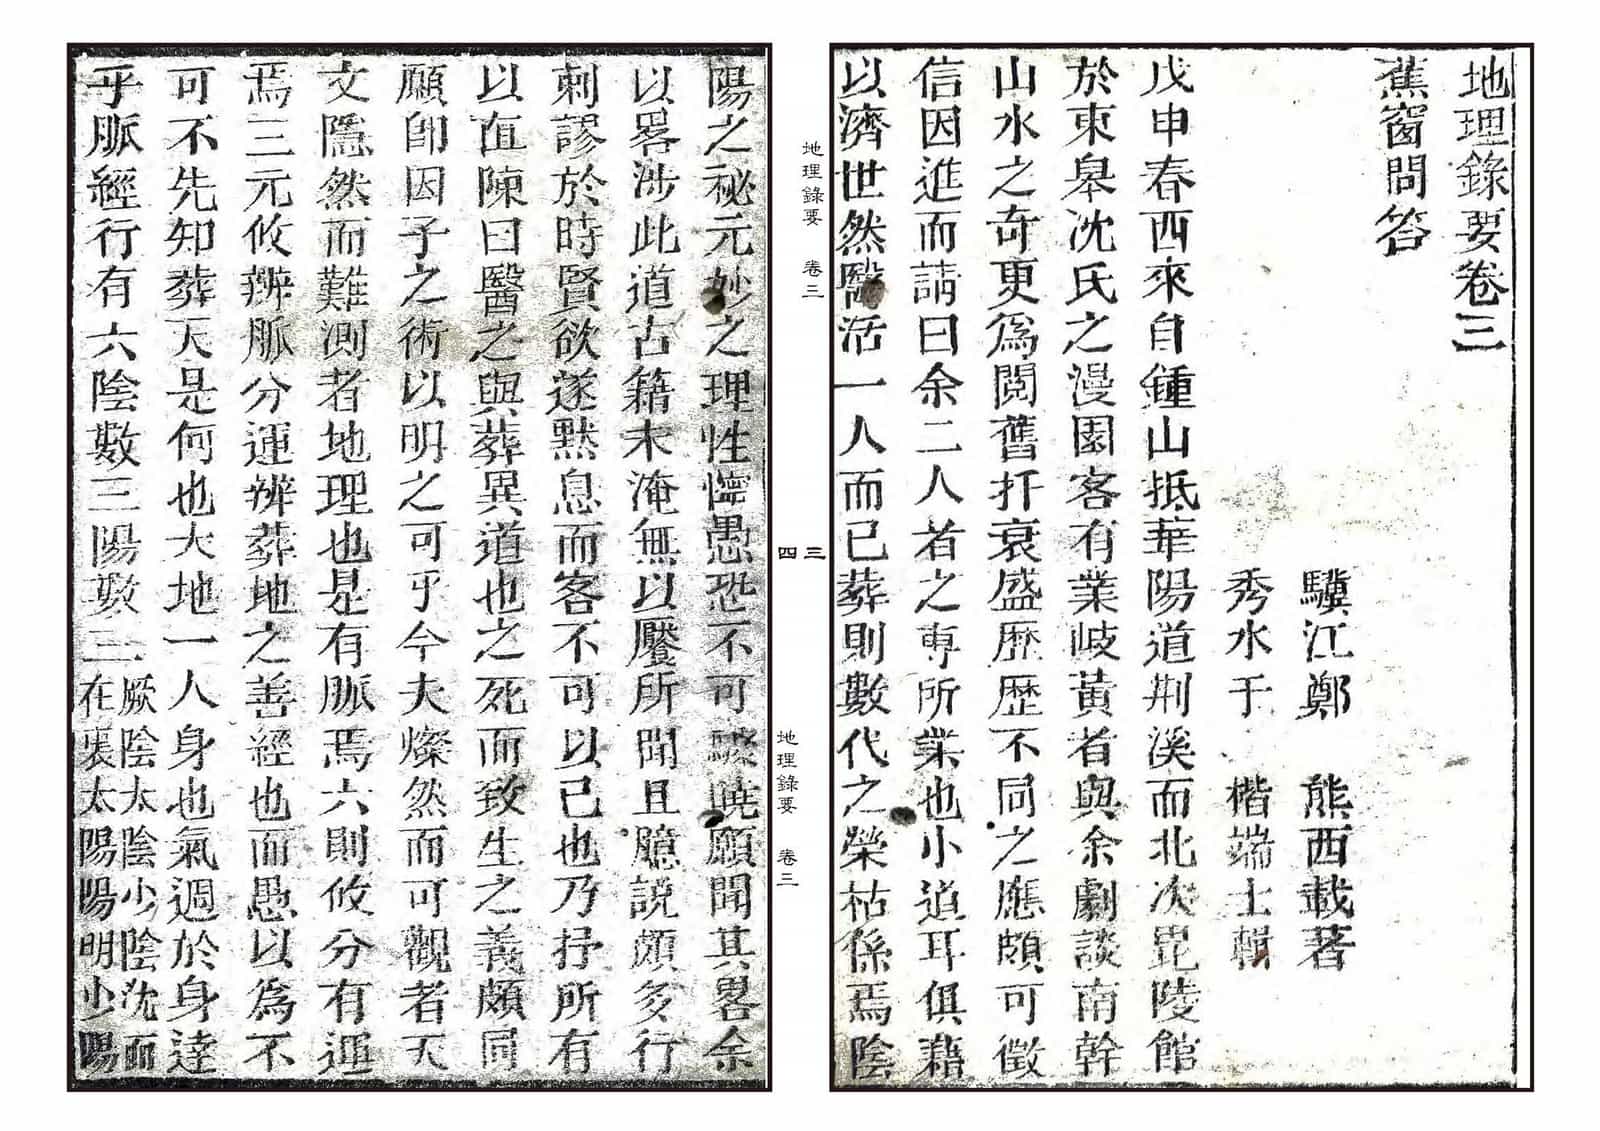 地理錄要卷三
蕉窗問答
驥江鄭熊西載著
秀水于楷端士輯
戊申春西來自鍾山抵華陽道荆溪而北次毘陵館
於東皋沈氏之漫園客有業岐黃者與余劇談南幹
山水之奇更爲閱舊扦衰盛歷歷不同之應頗可徵
信因進而請曰余二人者之專所業也小道耳俱藉
以濟世然醫活一人而已葬則數代之榮枯係焉陰
地理錄要 卷三
三
四
地理錄要 卷三
陽之祕元妙之理性懵愚恐不可驟曉願聞其畧余
以畧涉此道古籍未淹無以饜所聞且臆說頗多行
刺謬於時賢欲遂黙息而客不可以已也乃抒所有
以直陳曰醫之與葬異道也之死而致生之義頗同
願卽因子之術以明之可乎今夫燦然而可觀者天
文隱然而難測者地理也是有脈焉六則攸分有運
焉三元攸辨脈分運辨葬地之善經也而愚以為不
可不先知葬天是何也大地一人身也氣週於身達
乎脈經行有六陰數三陽數三厥陰太陰少陰沈而在裏太陽陽明少陽